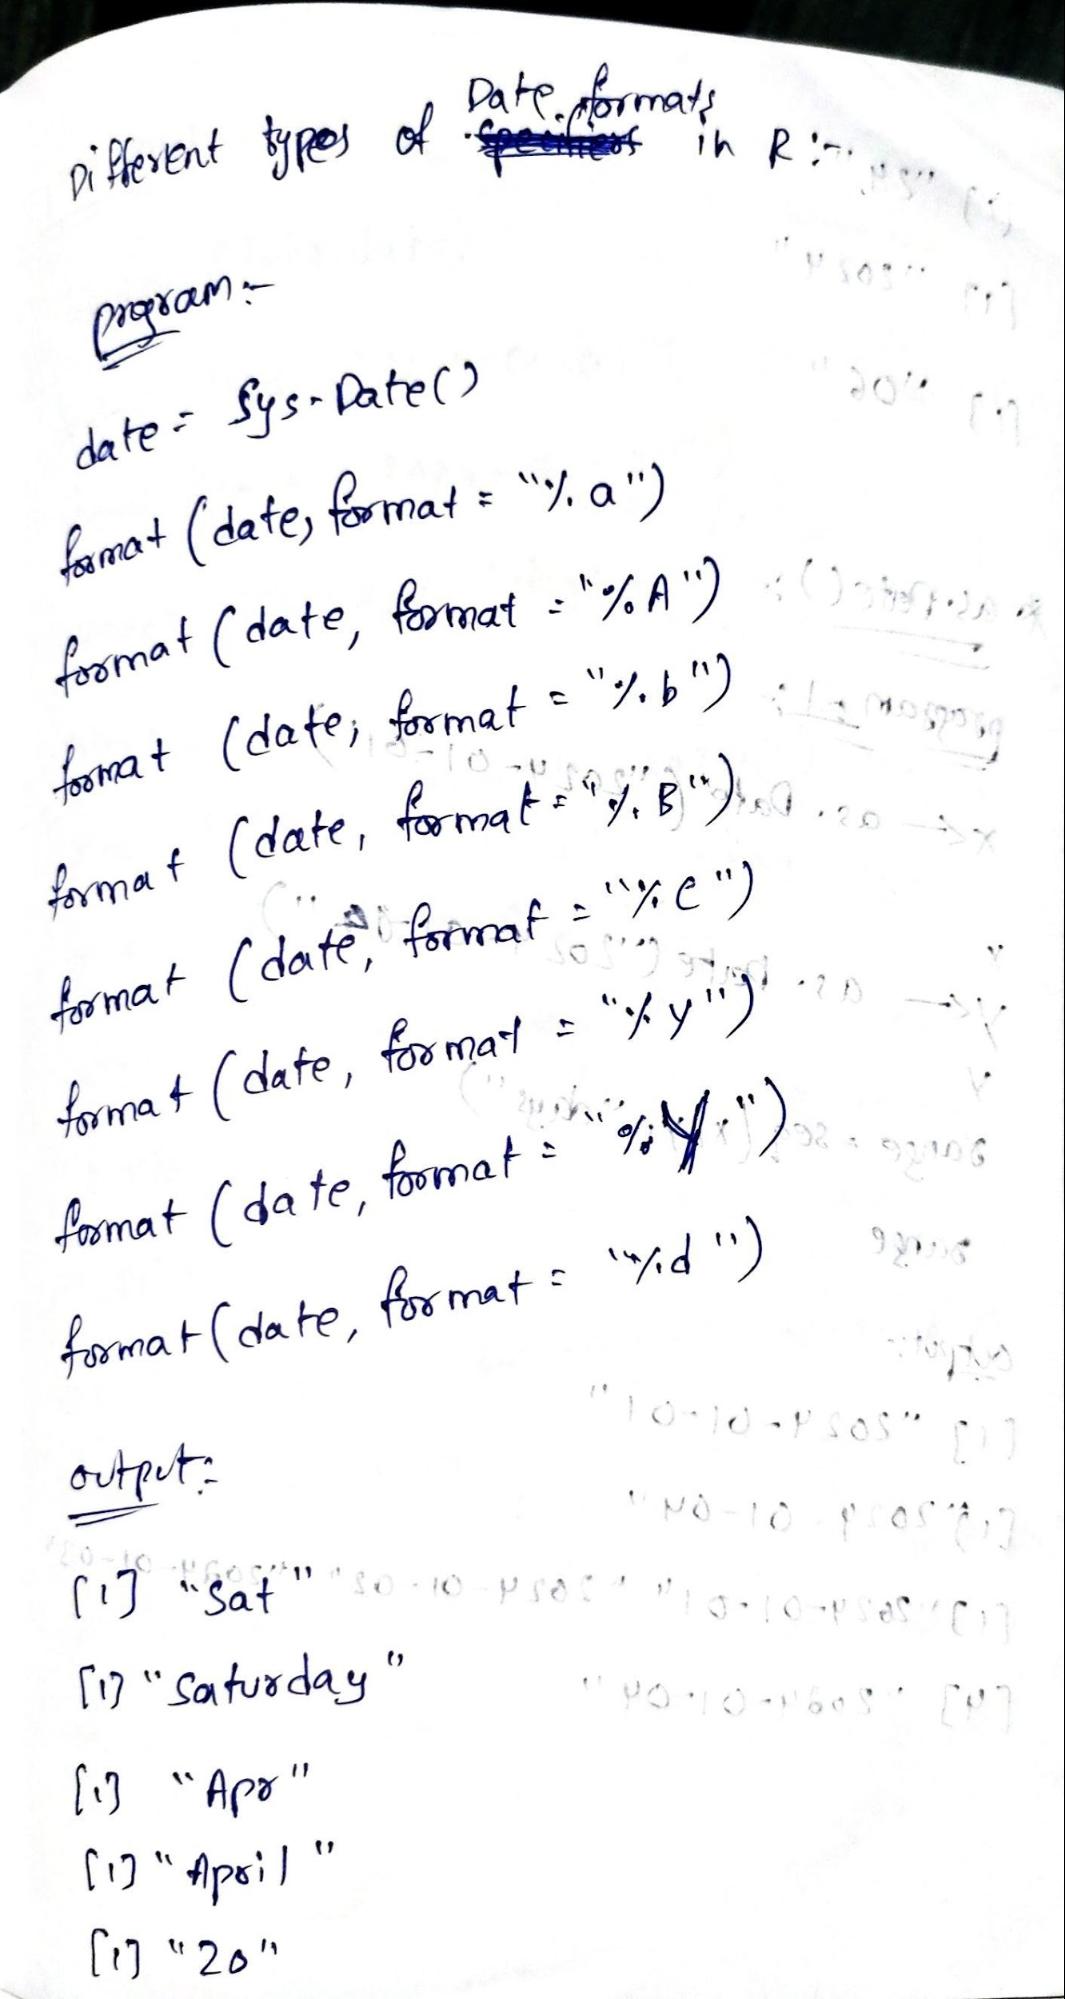 Different types of Date formats in R :-
program :-
date = Sys.Date()
format (date, format = "%a")
format (date, format = "%A")
format (date, format = "%b")
format (date, format = "%B")
format (date, format = "%C")
format (date, format = "%y")
format (date, format = "%Y")
format (date, format = "%d")
output :-
[1] "Sat"
[1] "Saturday"
[1] "Apr"
[1] "April"
[1] "20"